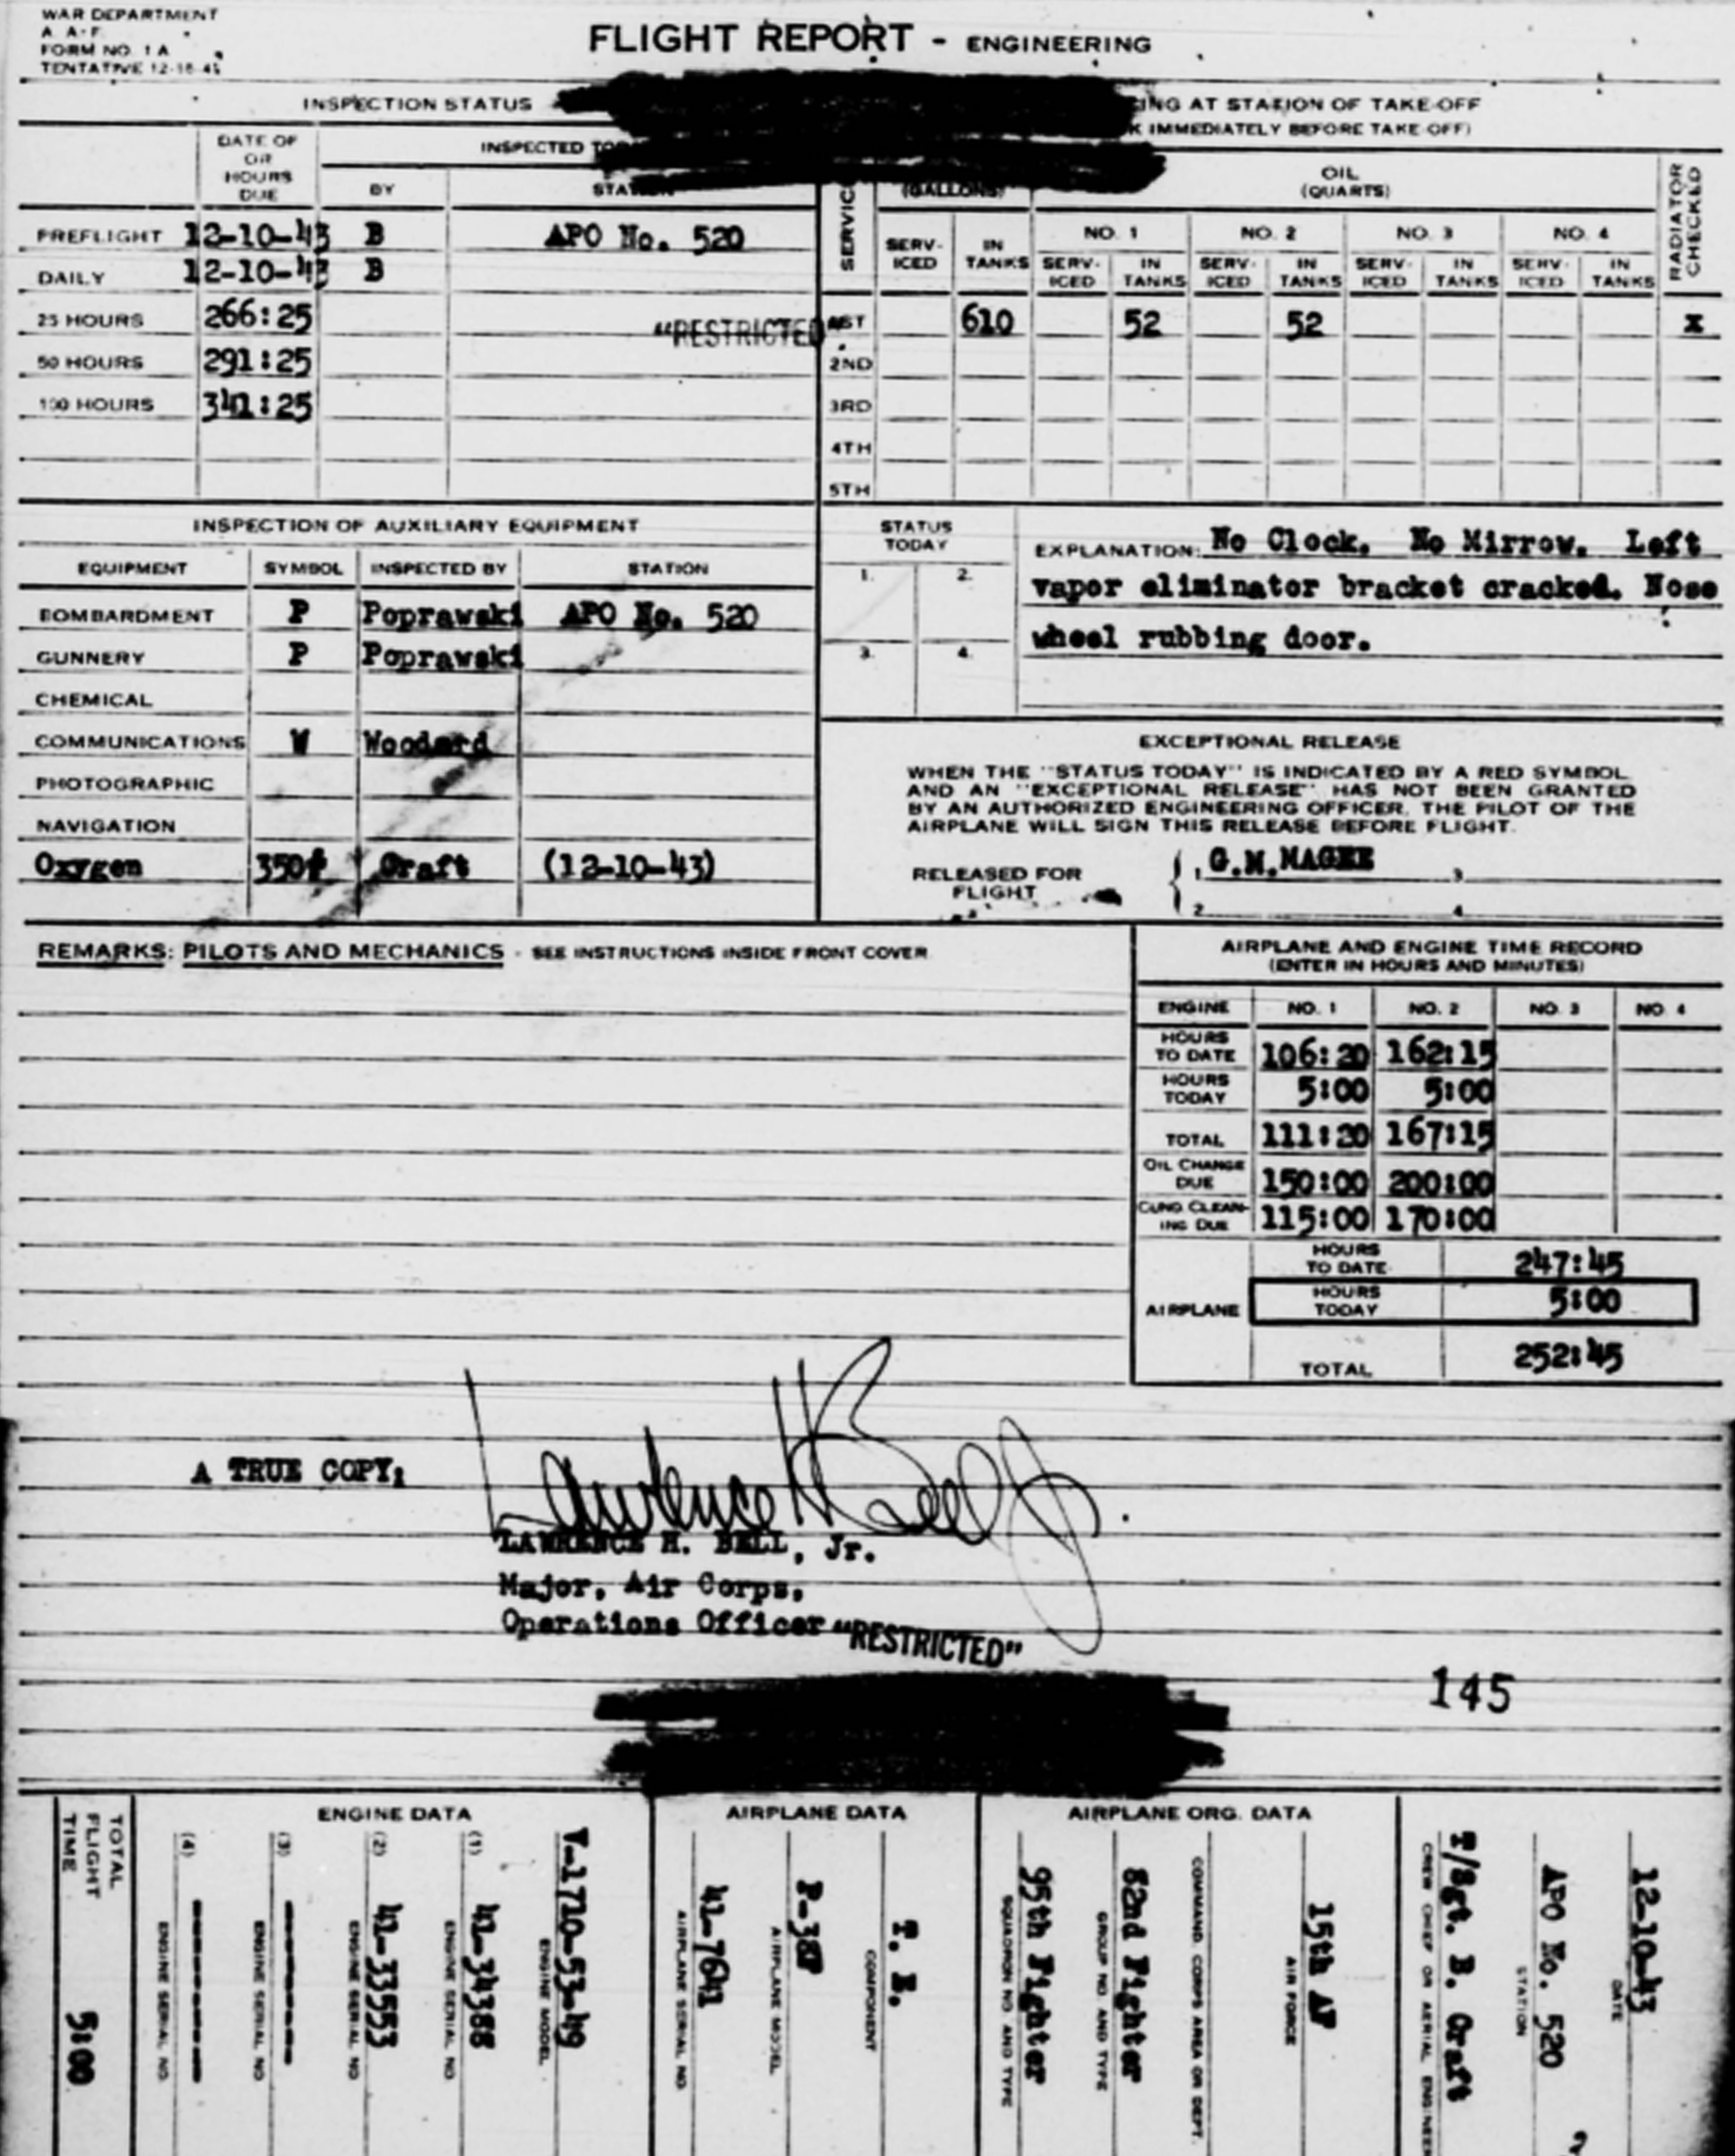 WAR DEPARTMENT
A. A. F.
FORM NO. 1A
TENTATIVE 12-18-41
FLIGHT REPORT - ENGINEERING
INSPECTION STATUS
ING AT STATION OF TAKE-OFF
K IMMEDIATELY BEFORE TAKE-OFF)
DATE OF OR HOURS DUE
INSPECTED
BY
SERVIC
(GALLONS)
OIL (QUARTS)
RADIATOR CHECKED
NO. 1 NO. 2 NO. 3 NO. 4
SERV-ICED IN TANKS SERV-ICED IN TANKS SERV-ICED IN TANKS SERV-ICED IN TANKS SERV-ICED IN TANKS
PREFLIGHT 12-10-43 B APO No. 520
DAILY 12-10-43 B
25 HOURS 266:25
"RESTRICTED
1ST 610 52 52 X
50 HOURS 291:25
2ND
100 HOURS 341:25
3RD
4TH
5TH
INSPECTION OF AUXILIARY EQUIPMENT
EQUIPMENT SYMBOL INSPECTED BY STATION
BOMBARDMENT P Poprawski APO No. 520
GUNNERY P Poprawski
CHEMICAL
COMMUNICATIONS W Woodard
PHOTOGRAPHIC
NAVIGATION
Oxygen 350# Graft (12-10-43)
STATUS TODAY
1. 2.
3. 4.
EXPLANATION: No Clock. No Mirrow. Left
vapor eliminator bracket cracked. Nose
wheel rubbing door.
EXCEPTIONAL RELEASE
WHEN THE "STATUS TODAY" IS INDICATED BY A RED SYMBOL
AND AN "EXCEPTIONAL RELEASE" HAS NOT BEEN GRANTED
BY AN AUTHORIZED ENGINEERING OFFICER, THE PILOT OF THE
AIRPLANE WILL SIGN THIS RELEASE BEFORE FLIGHT.
RELEASED FOR FLIGHT
1. G.M.MAGEE 3.
2. 4.
REMARKS: PILOTS AND MECHANICS - SEE INSTRUCTIONS INSIDE FRONT COVER
AIRPLANE AND ENGINE TIME RECORD
(ENTER IN HOURS AND MINUTES)
ENGINE NO. 1 NO. 2 NO. 3 NO. 4
HOURS TO DATE 106:20 162:15
HOURS TODAY 5:00 5:00
TOTAL 111:20 167:15
OIL CHANGE DUE 150:00 200:00
CUNO CLEAN-ING DUE 115:00 170:00
AIRPLANE
HOURS TO DATE 247:45
HOURS TODAY 5:00
TOTAL 252:45
A TRUE COPY:
Lawrence H Bell Jr.
LAWRENCE H. BELL, Jr.
Major, Air Corps,
Operations Officer
"RESTRICTED"
145
TOTAL FLIGHT TIME 5:00
ENGINE DATA
(4) ENGINE SERIAL NO.
(3) ENGINE SERIAL NO.
(2) 42-33553 ENGINE SERIAL NO.
(1) 42-34388 ENGINE SERIAL NO.
V-1710-53-49 ENGINE MODEL
AIRPLANE DATA
AIRPLANE SERIAL NO.
P-38F AIRPLANE MODEL
T. E. COMPONENT
AIRPLANE ORG. DATA
95th Fighter SQUADRON NO. AND TYPE
82nd Fighter GROUP NO. AND TYPE
COMMAND, CORPS AREA OR DEPT.
15th AF AIR FORCE
T/Sgt. B. Graft CREW CHIEF OR AERIAL ENGINEER
APO No. 520 STATION
12-10-43 DATE